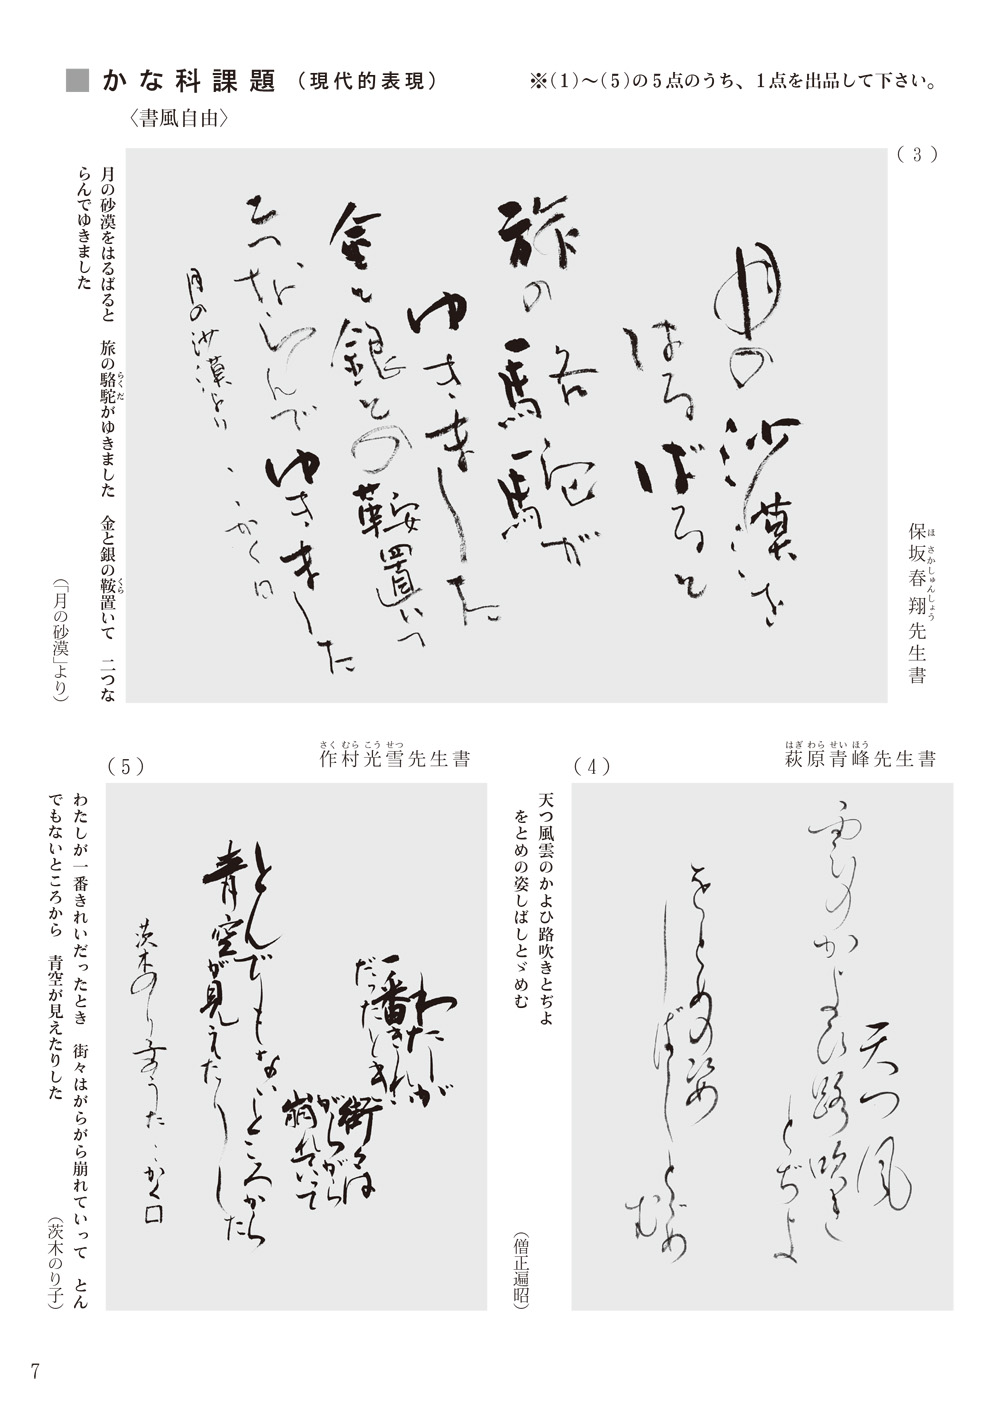 ■ かな科課題（現代的表現）
※（1）～（5）の5点のうち、1点を出品して下さい。
〈書風自由〉
（3）
保坂春翔先生書
ほさかしゅんしょう
月の沙漠を
はるばると
旅の駱駝が
ゆきました
金と銀との鞍置いて
二つならんでゆきました
月の沙漠より
かく
月の砂漠をはるばると　旅の駱駝がゆきました　金と銀の鞍置いて　二つな
らくだ
くら
らんでゆきました
（「月の砂漠」より）
（4）
萩原青峰先生書
はぎわらせいほう
天つ風
雲のかよひ路吹き
とぢよ
をとめの姿
しばしとゞめ
む
天つ風雲のかよひ路吹きとぢよ
をとめの姿しばしとゞめむ
（僧正遍昭）
（5）
作村光雪先生書
さくむらこうせつ
わたしが
一番きれい
だったとき
街々は
がらがら
崩れていって
とんでもないところから
青空が見えたりした
茨木のり子のうた かく
わたしが一番きれいだったとき　街々はがらがら崩れていって　とん
でもないところから　青空が見えたりした
（茨木のり子）
7